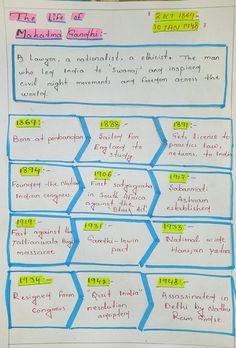 The Life of
Mahatma Gandhi:
2 OCT 1869 -
30 JAN 1948
A Lawyer, a nationalist, a ethicist. The man
who led India to 'Swaraj' and inspired
civil right movements and freedom across the
world.
1869:
Born at porbandar
1888:
Sailed for
England to
Study
1891:
Gets license to
practice law,
returns to India
1894:
Founded the Natal
Indian congress
1906:
First satyagraha
in South Africa
against the
"Black Bill"
1917:
Sabarmati
Ashram
established
1919:
against the
Jallianwala Bagh
massacre
1931:
Gandhi-Irwin
pact
1933:
National wide
Harijan Yatra
1934:
Resigned from
Congress
1942:
"Quit India"
resolution
adopted
1948:
Assassinated in
Delhi by Nathu
Ram Godse